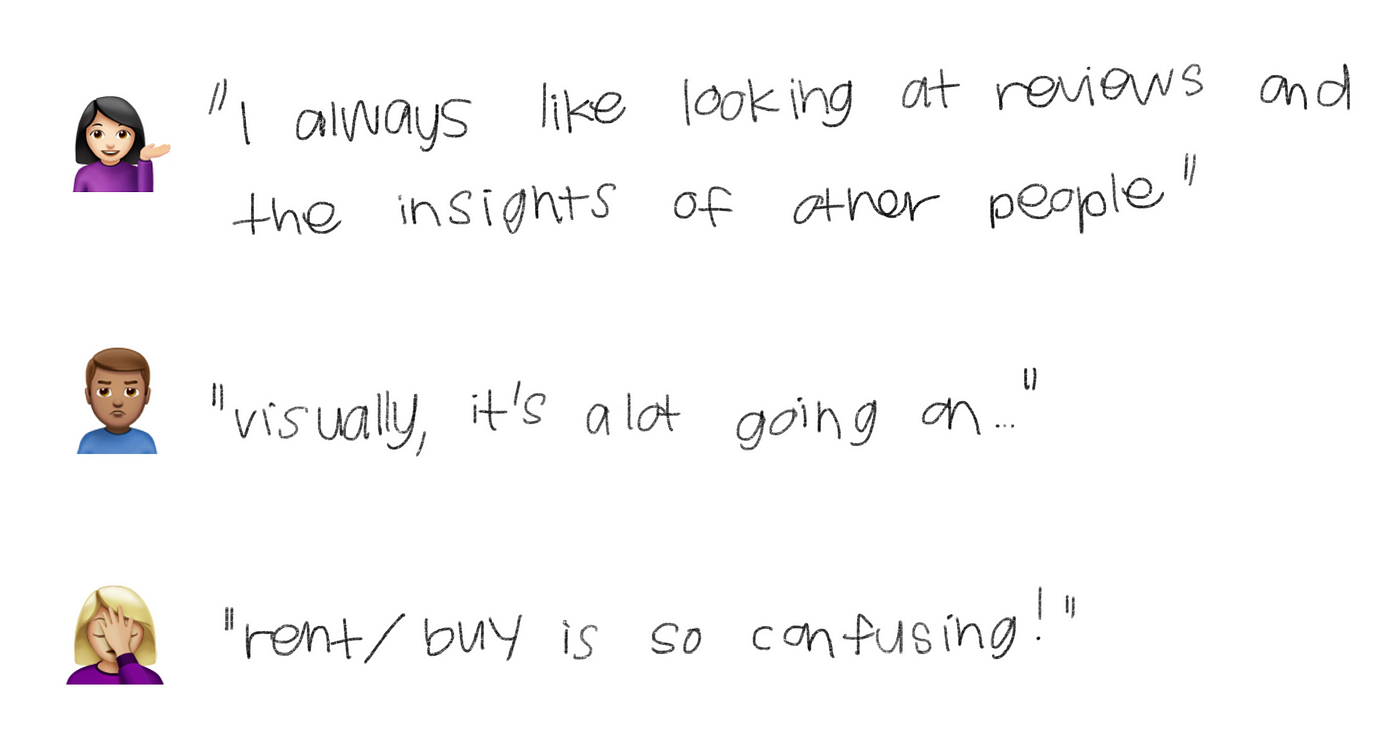 "I always like looking at reviews and
the insights of other people"
"visually, it's a lot going on..."
"rent/buy is so confusing!"